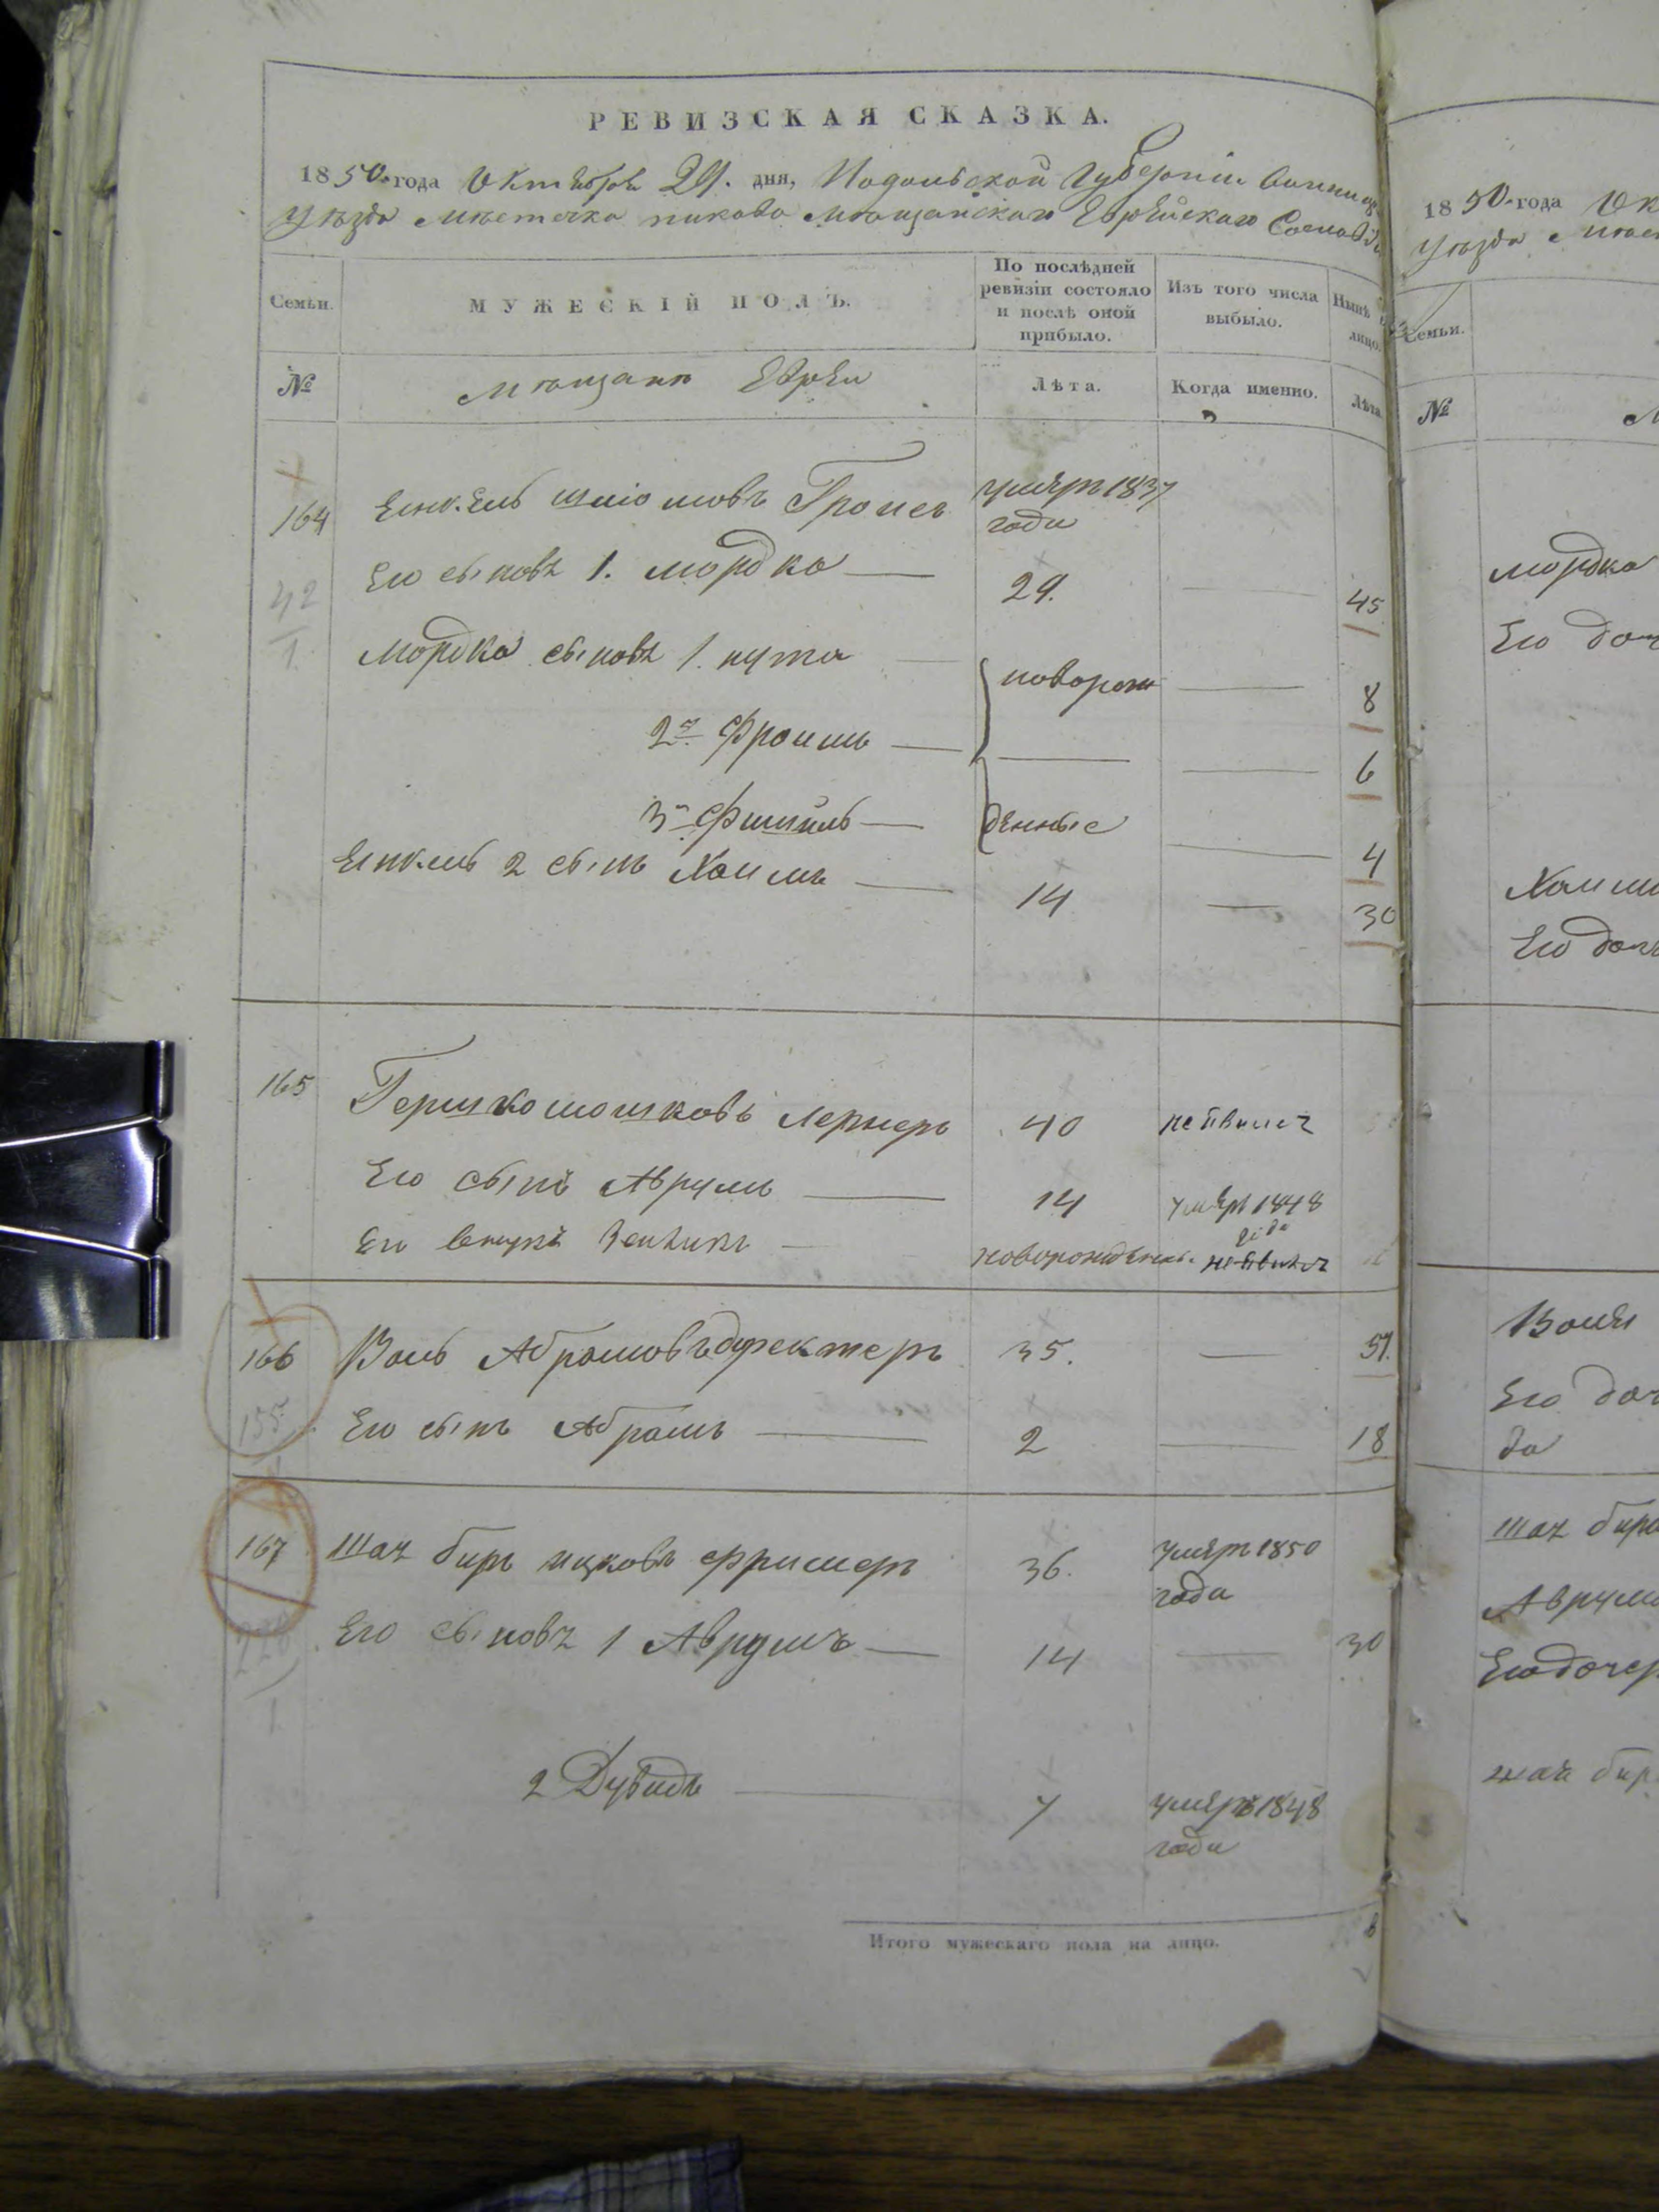 РЕВИЗСКАЯ СКАЗКА.
1850 года Октября 29. дня, Подольской Губерніи Винниц
Уѣзда Мѣстечка пикова Мѣщанскаго Еврейскаго
Семьи.
МУЖЕСКІЙ ПОЛЪ.
По послѣдней ревизіи состояло и послѣ оной прибыло.
Изъ того числа выбыло.
Нынѣ
лицо.
№
Мѣщане Евреи
Лѣта.
Когда именно.
Лѣта
164 Янкель Шліомовъ умеръ 1837 года
42
1.
Его сыновъ 1. Мордко 29. 45
Мордка сыновъ 1. нута новорож 8
2й Фроимъ 6
3й Фишель денные 4
Янкель 2 сынъ Хаимъ 14 30
165 Гершко мошковъ Лернеръ 40
Его сынъ Аврумъ 14 умеръ 1848 года
Его внукъ новорожденн.
166 Воль Абрамовъ 35. 51.
155
Его сынъ Абрамъ 2 18
167 Шах бир ицковъ 36. умеръ 1850 года
Его сыновъ 1 Аврумъ 14 30
1
2 Дувидъ 7 умеръ 1848 года
Итого мужескаго пола на лицо.
1850 года Ок
Уѣзда
Семьи.
№
М
Мордка
Его доч
Его доч
Его доч
Шах бир
Аврум
Его дочер
шах бир